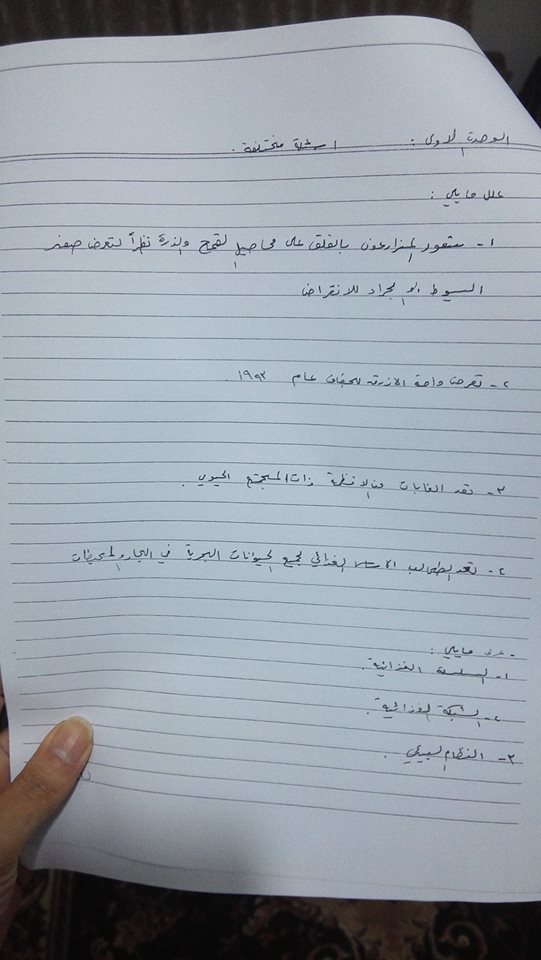 الوحدة الاولى : اسئلة مختلفة .
علل ما يلي :
١- شعور المزارعون بالقلق على محاصيل القمح والذرة نظراً لتعرض صغير
السيوط ابو الجراد للانقراض
٢- تعرض واحة الازرق للجفاف عام ١٩٩٣ .
٣- تعد الغابات من الانظمة ذات المجتمع الحيوي .
٤- تعد الطحالب الاساس الغذائي لجميع الحيوانات البحرية في البحار والمحيطات
- عرف ما يلي :
١- السلسلة الغذائية .
٢- الشبكة الغذائية .
٣- النظام البيئي .